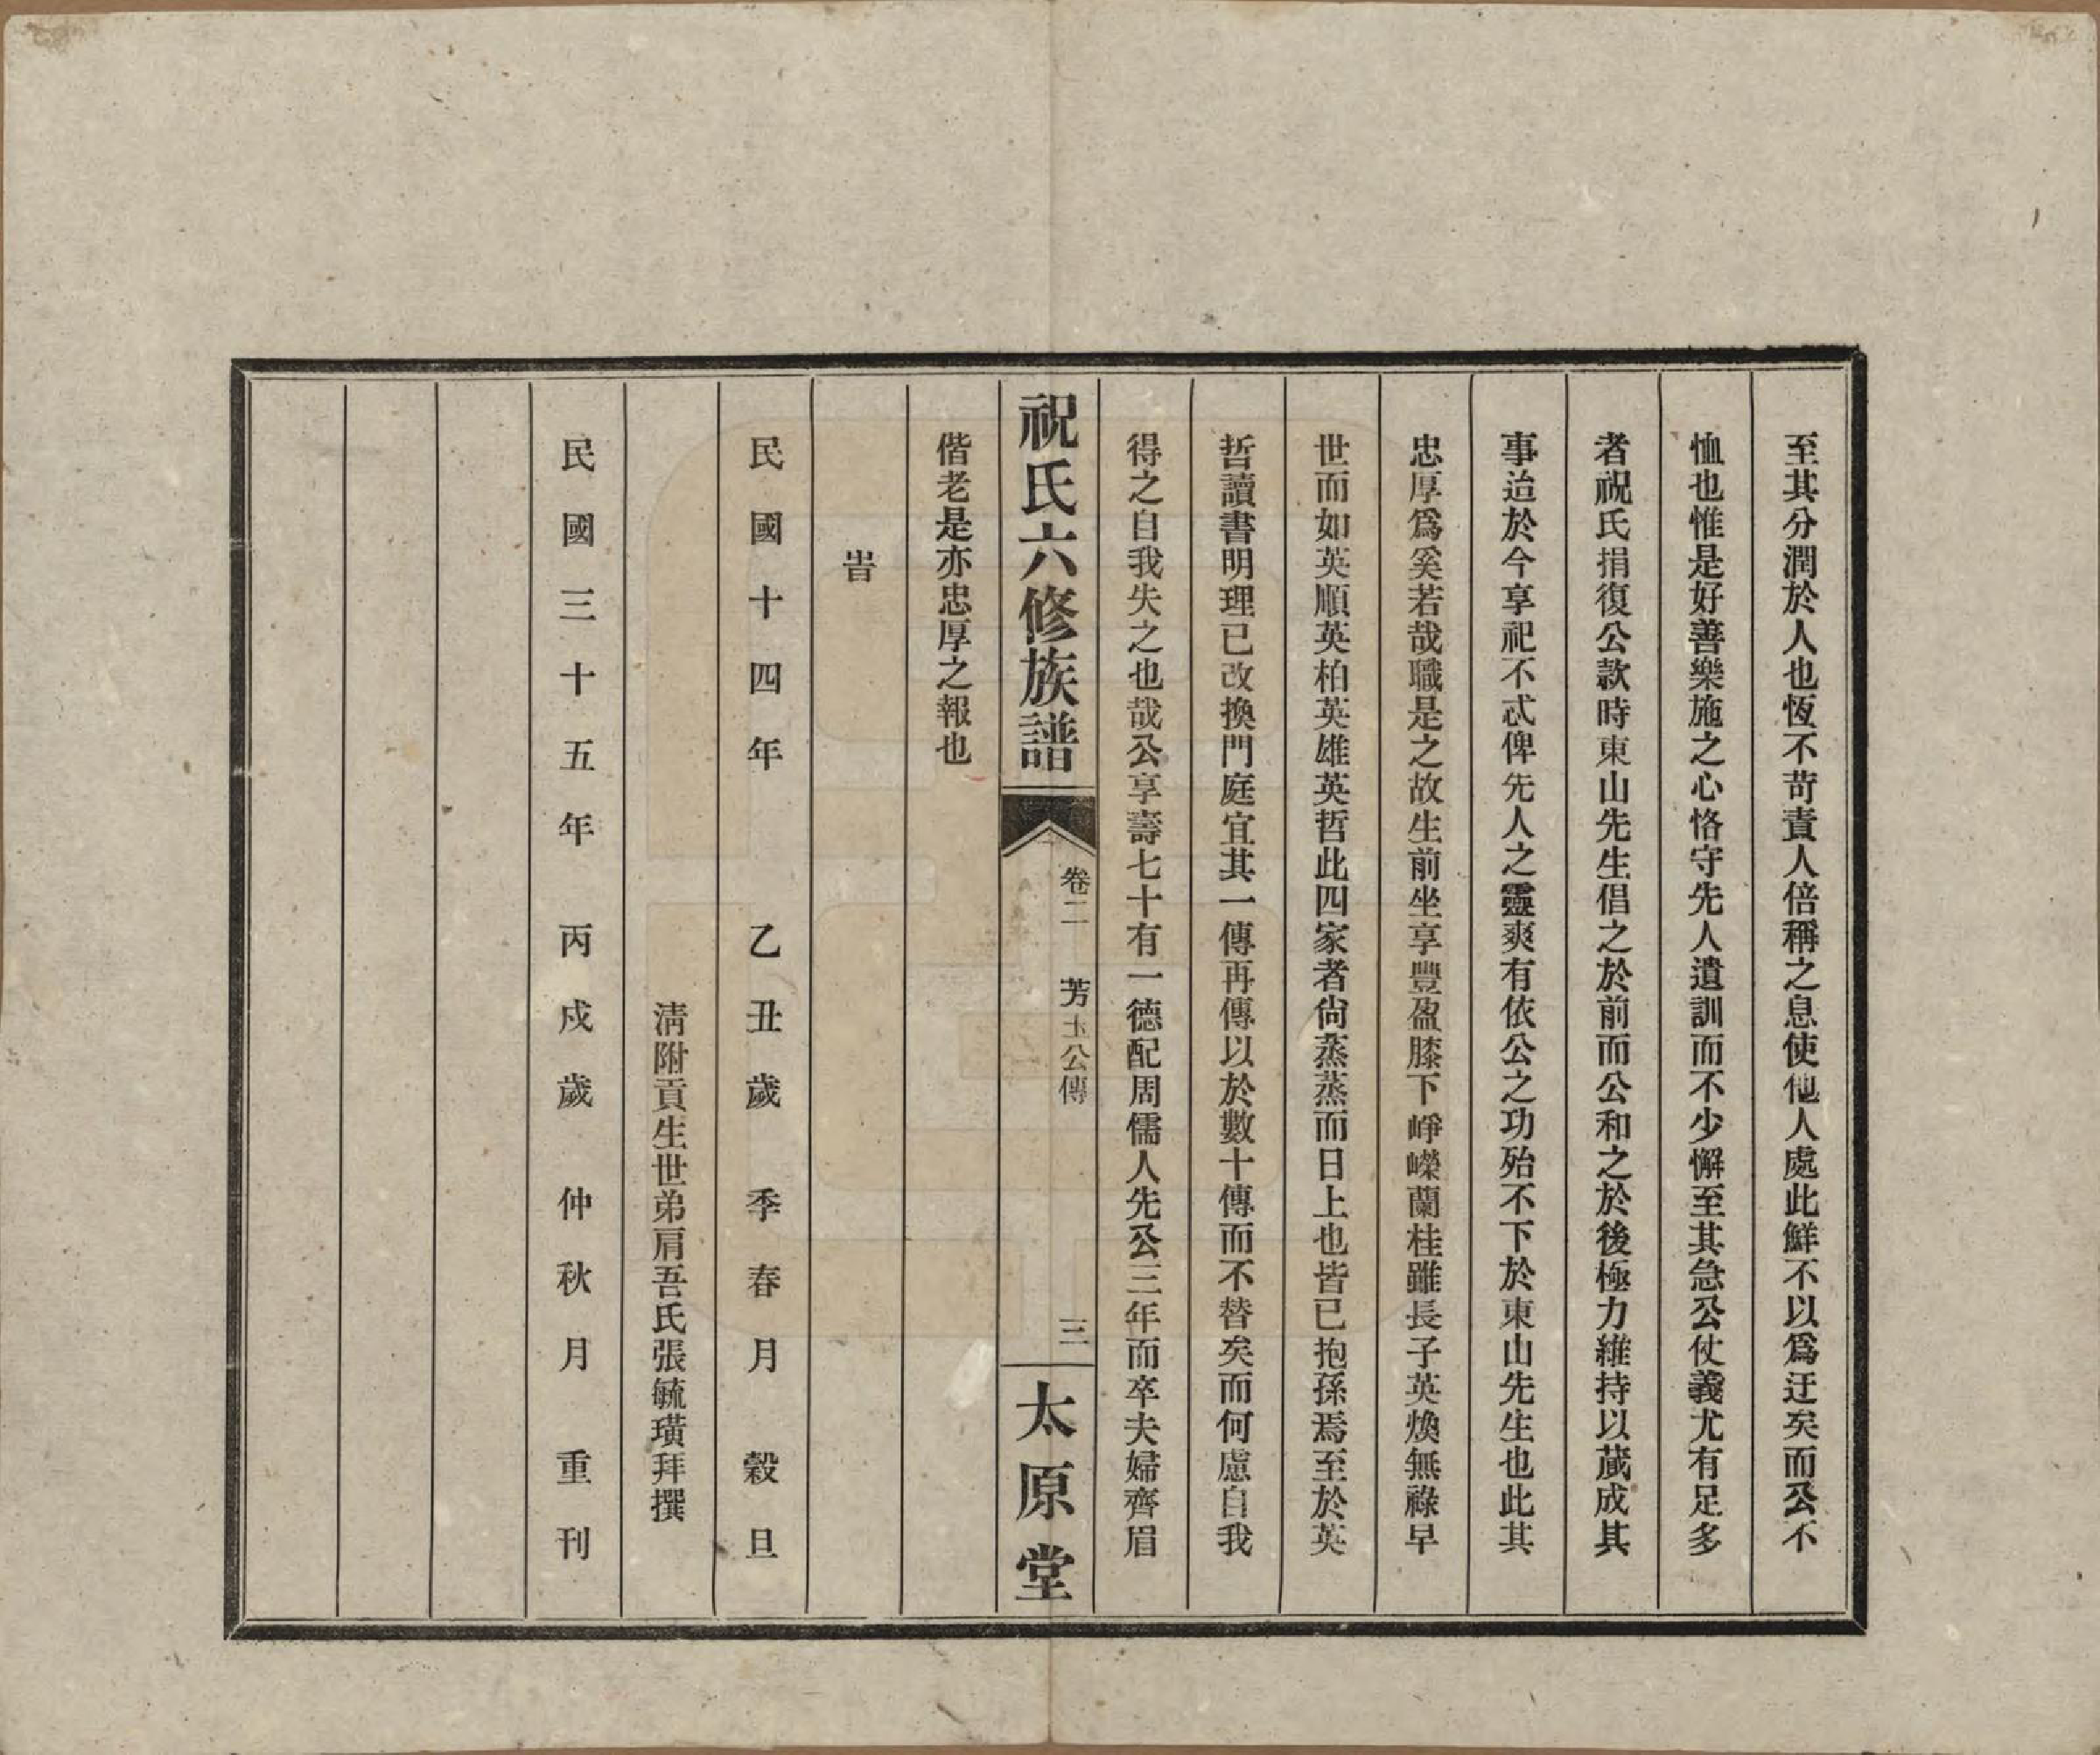 至其分潤於人也恆不苛責人倍稱之息使他人處此鮮不以爲迂矣而公不
恤也惟是好善樂施之心恪守先人遺訓而不少懈至其急公仗義尤有足多
者祝氏捐復公款時東山先生倡之於前而公和之於後極力維持以蕆成其
事迨於今享祀不忒俾先人之靈爽有依公之功殆不下於東山先生也此其
忠厚爲奚若哉職是之故生前坐享豐盈膝下崢嶸蘭桂雖長子英煥無祿早
世而如英順英柏英雄英哲此四家者尙蒸蒸而日上也皆已抱孫焉至於英
哲讀書明理已改換門庭宜其一傳再傳以於數十傳而不替矣而何慮自我
得之自我失之也哉公享壽七十有一德配周儒人先公三年而卒夫婦齊眉
祝氏六修族譜
卷二 芳玉公傳
三
太原堂
偕老是亦忠厚之報也
旹
民國十四年 乙丑歲 季春月 穀旦
淸附貢生世弟肩吾氏張毓璜拜撰
民國三十五年 丙戍歲 仲秋月 重刊